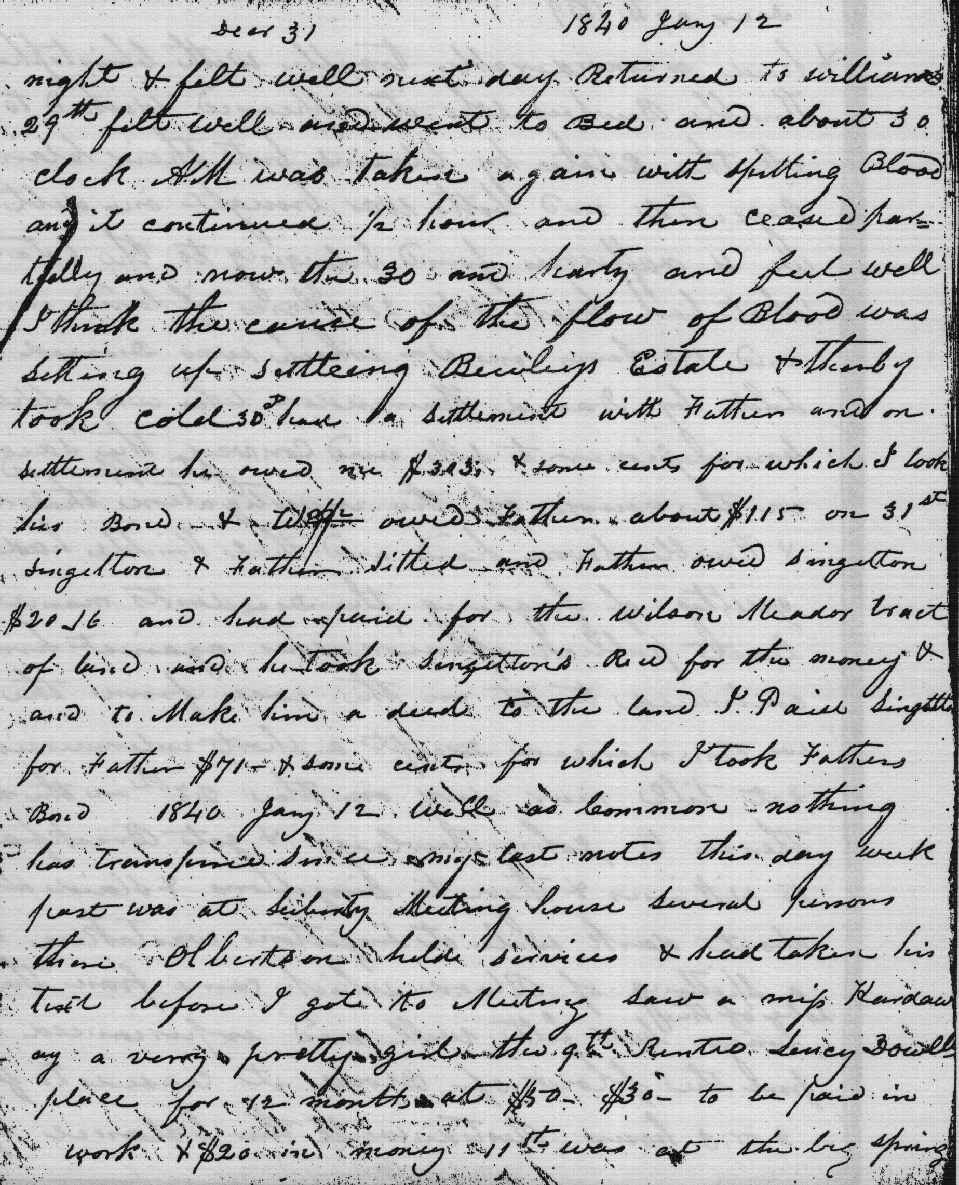 Decr 31 1840 Jany 12
night & felt well next day Returned to williams
29th felt well and went to Bed and about 3 o
clock AM was taken again with spitting Blood
and it continued 1/2 hour and then ceased par=
tially and now the 30 and harty and feel well
I think the cause of the flow of Blood was
setting up settleing Bewleys Estate & thereby
took cold 30th had a settlement with Father and on
settlement he owed me & some cents for which I took
his Bond & owed Father about $115 on 31st
Singelton & Father Sitted and Father owed Singelton
$20.16 and had paid for the Wilson Meador tract
of land and he took Singelton's Recd for the money &
and to Make him a deed to the land I Paid Singelton
for Father $71- & some cents for which I took Fathers
Bond 1840 Jany 12 well as Common nothing
has transpired Since my last notes this day week
past was at Liberty Meeting house Several persons
there Olbertson helde services & had taken his
text before I gote to Meeting saw a miss Hardaw
ay a verry pretty girl the 9th Rented Lucy Dowells
place for 12 months at $50- $30- to be paid in
work & $20 in money 11th was at the big spring